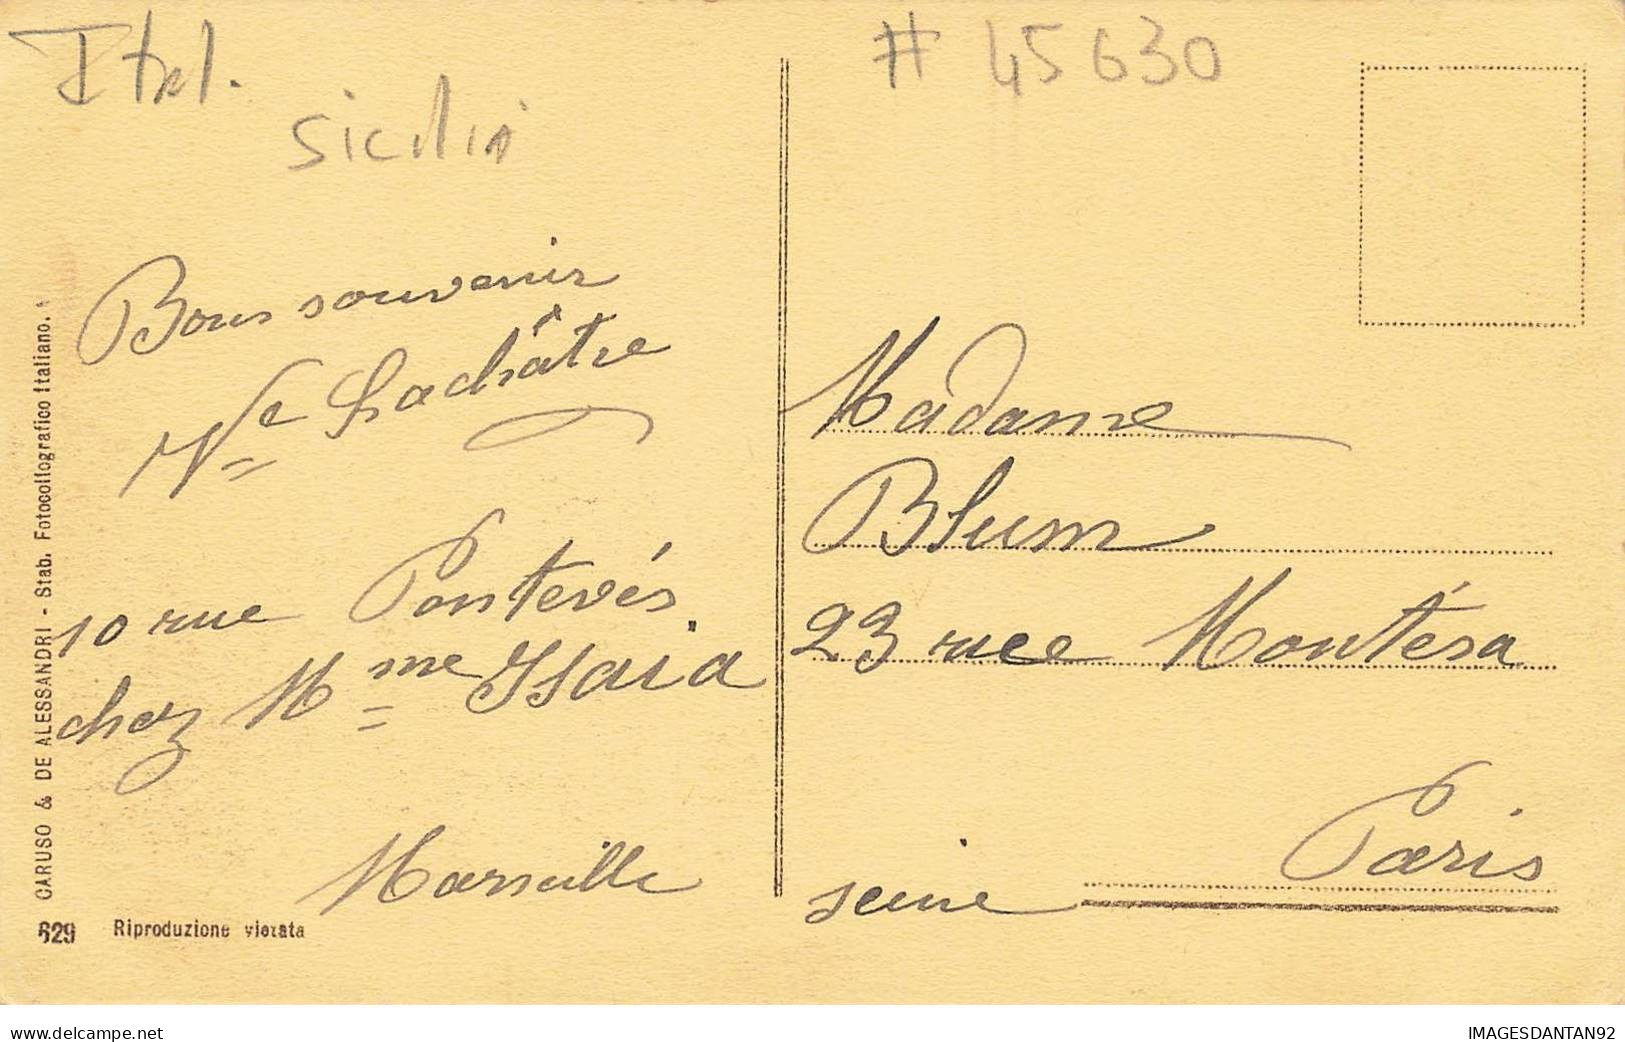 Ital.
Sicilia
# 45630
Bons souvenir
Vve Lachâtre
10 rue Pontevés.
chez Mme Isaia
Marseille
Madame
Blum
23 rue Montésa
Paris
seine
CARUSO & DE ALESSANDRI - Stab. Fotocollografico Italiano.
629 Riproduzione vietata
www.delcampe.net
IMAGESDANTAN92